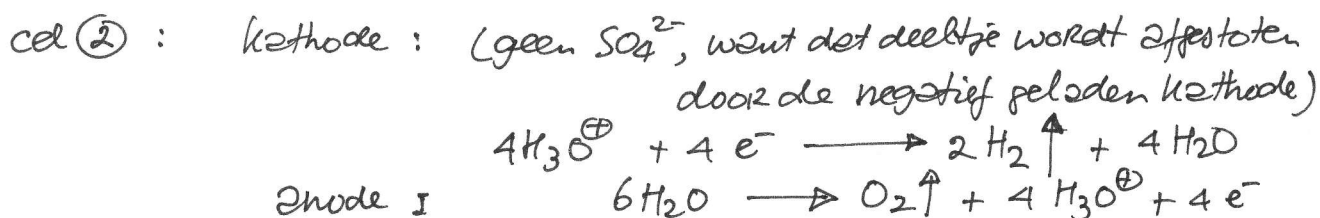 cel ② : kathode : (geen SO₄²⁻, want dat deeltje wordt afgestoten
door de negatief geladen kathode)
4H₃O⊕ + 4 e⁻ ⟶ 2 H₂↑ + 4 H₂O
anode I 6H₂O ⟶ O₂↑ + 4 H₃O⊕ + 4 e⁻